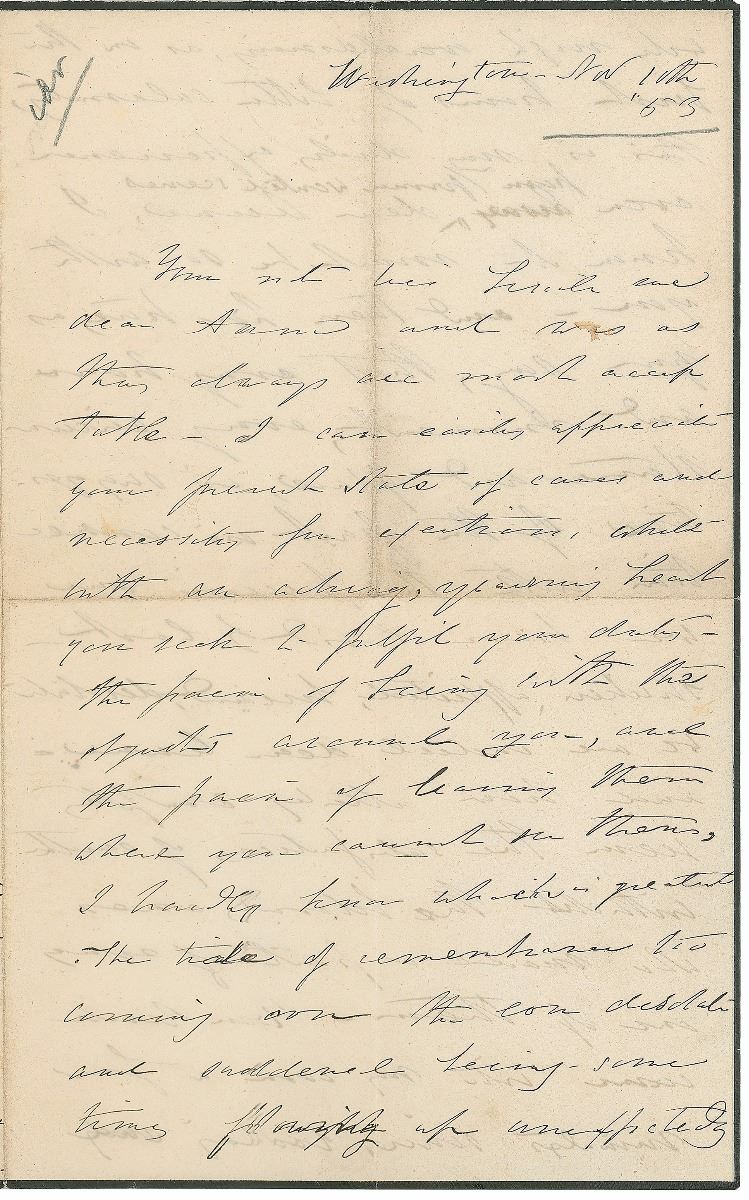 Washington - Nov 10th
"63
Your note was
dear Anna and was as
they always are most accep
table - I can easily appreciate
your present state of cares and
necessity for exertion, while
with an aching, yearning heart
you seek to fulfil your duty -
the pain of being with the
objects around you, and
the pain of leaving them
where you cannot see them,
I hardly know which is greatest
- The tide of remembrance too
coming over the desolate
and saddened being - some
times flowing up unexpectedly